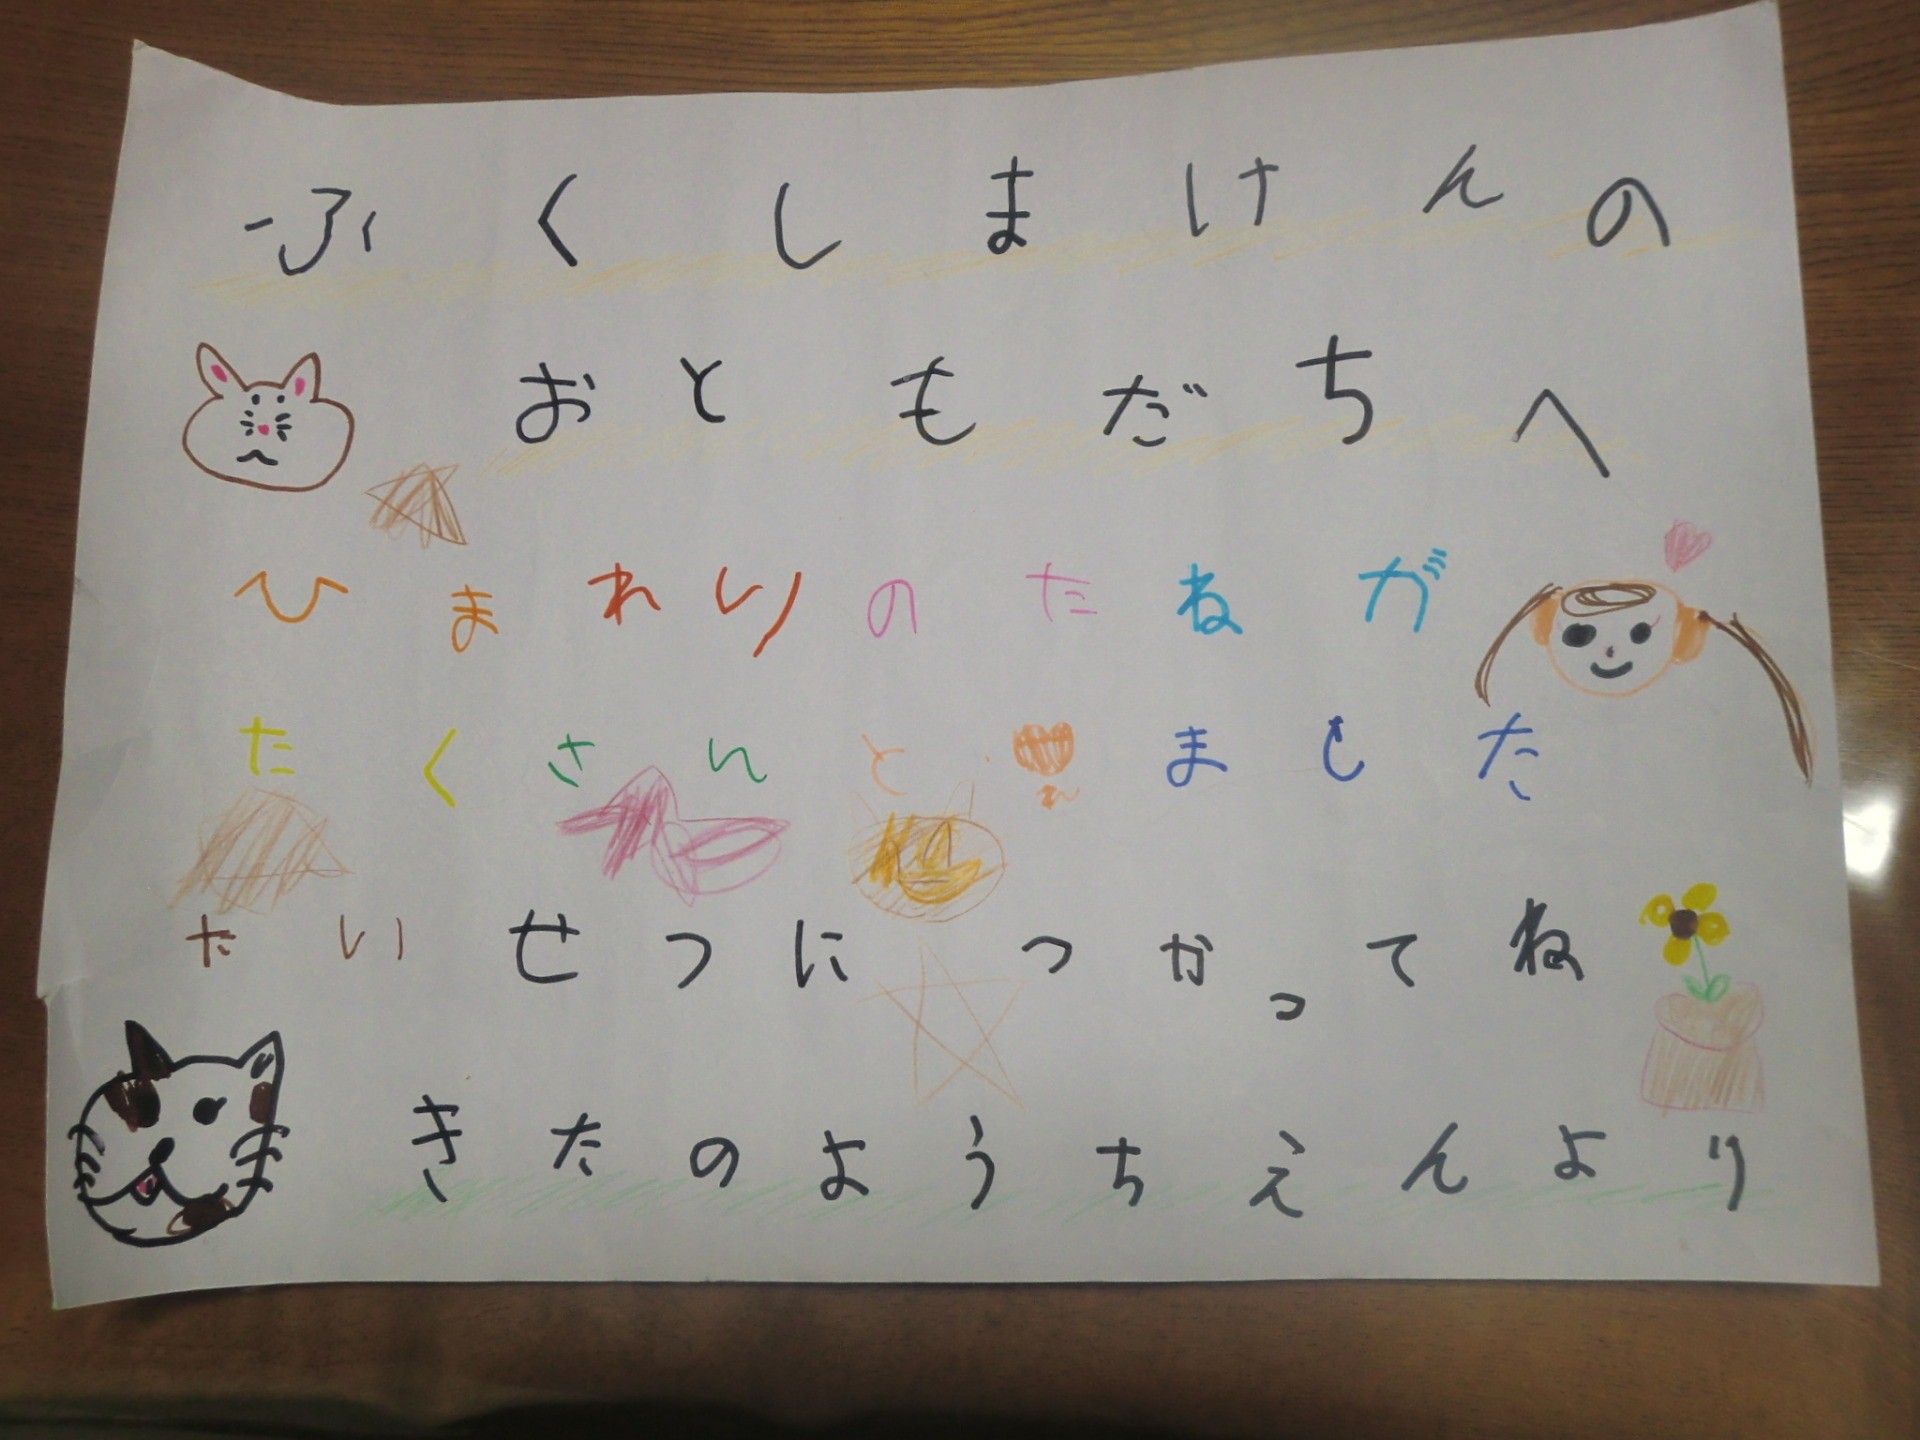 ふくしまけんの
おともだちへ
ひまれりのたねが
たくさんとれました
たいせつにつかってね
きたのようちえんより